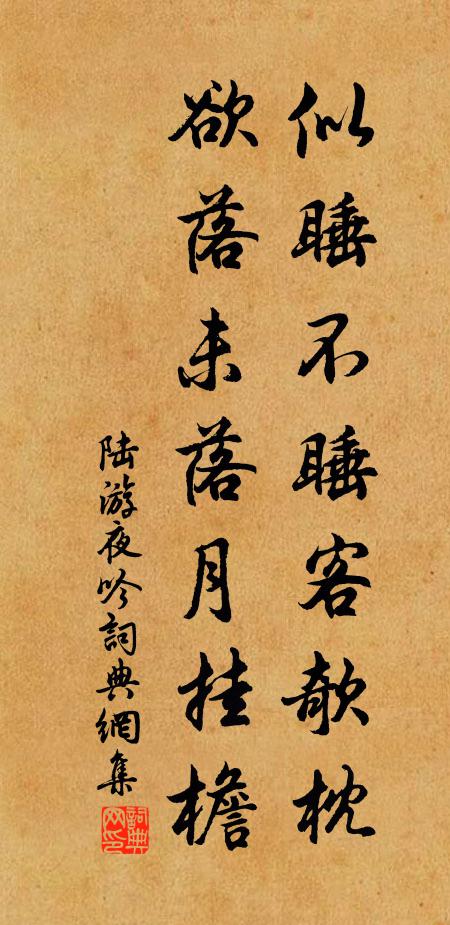 似睡不睡客欹枕
欲落未落月挂檐
陆游夜吟詞典網集
詞典网印